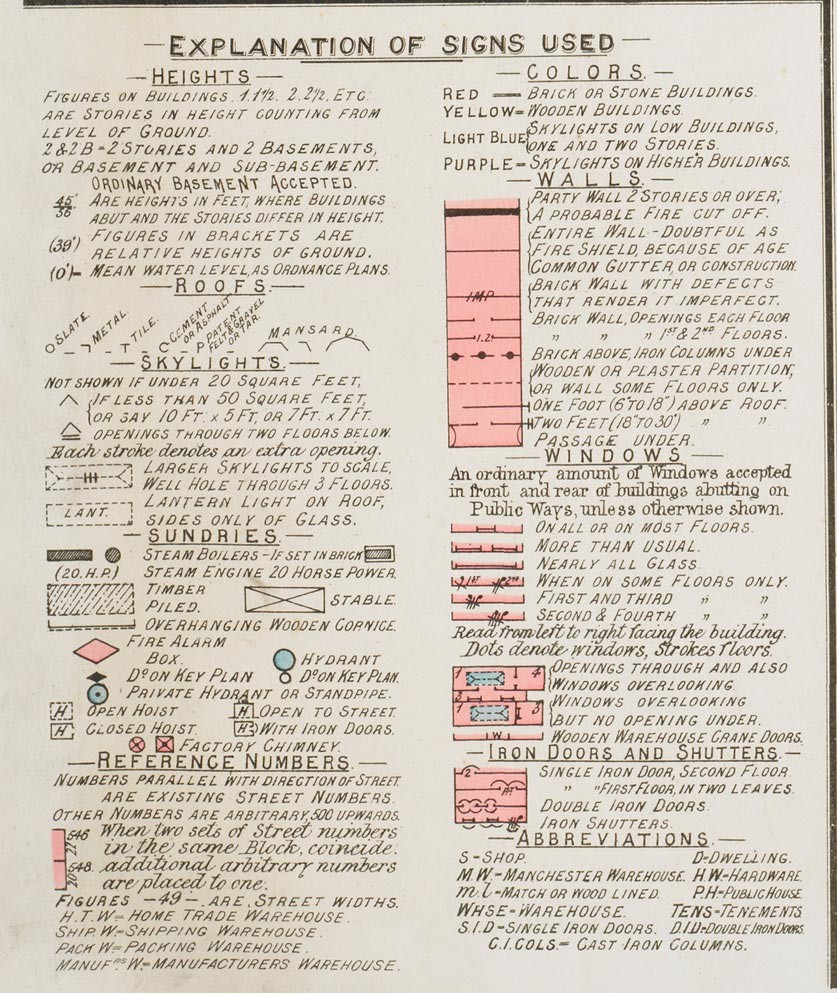 EXPLANATION OF SIGNS USED
HEIGHTS
FIGURES ON BUILDINGS. 1.1½. 2.2½. ETC.
ARE STORIES IN HEIGHT COUNTING FROM
LEVEL OF GROUND.
2 & 2B = 2 STORIES AND 2 BASEMENTS,
OR BASEMENT AND SUB-BASEMENT.
ORDINARY BASEMENT ACCEPTED.
45'/36' ARE HEIGHTS IN FEET, WHERE BUILDINGS
ABUT AND THE STORIES DIFFER IN HEIGHT.
(39') FIGURES IN BRACKETS ARE
RELATIVE HEIGHTS OF GROUND.
(0')- MEAN WATER LEVEL, AS ORDNANCE PLANS.
ROOFS.
O SLATE. METAL. T TILE. C CEMENT OR ASPHALT P PATENT FELT & GRAVEL OR TAR. MANSARD.
SKYLIGHTS.
NOT SHOWN IF UNDER 20 SQUARE FEET,
IF LESS THAN 50 SQUARE FEET,
OR SAY 10 FT. x 5 FT, OR 7 FT. x 7 FT.
OPENINGS THROUGH TWO FLOORS BELOW.
Each stroke denotes an extra opening.
LARGER SKYLIGHTS TO SCALE,
WELL HOLE THROUGH 3 FLOORS.
LANT. LANTERN LIGHT ON ROOF,
SIDES ONLY OF GLASS.
SUNDRIES
STEAM BOILERS - IF SET IN BRICK
(20. H.P.) STEAM ENGINE 20 HORSE POWER.
TIMBER
PILED. STABLE.
OVERHANGING WOODEN CORNICE.
FIRE ALARM
BOX. HYDRANT
Do ON KEY PLAN Do ON KEY PLAN.
PRIVATE HYDRANT OR STANDPIPE.
H. OPEN HOIST H. OPEN TO STREET.
H. CLOSED HOIST. H WITH IRON DOORS.
FACTORY CHIMNEY.
REFERENCE NUMBERS.
NUMBERS PARALLEL WITH DIRECTION OF STREET.
ARE EXISTING STREET NUMBERS.
OTHER NUMBERS ARE ARBITRARY, 500 UPWARDS.
546 When two sets of Street numbers
in the same Block, coincide:
548. additional arbitrary numbers
are placed to one.
FIGURES -49- ARE STREET WIDTHS.
H.T.W = HOME TRADE WAREHOUSE.
SHIP. W = SHIPPING WAREHOUSE.
PACK W = PACKING WAREHOUSE.
MANUFRS W = MANUFACTURERS WAREHOUSE.
COLORS.
RED = BRICK OR STONE BUILDINGS.
YELLOW = WOODEN BUILDINGS.
LIGHT BLUE SKYLIGHTS ON LOW BUILDINGS,
ONE AND TWO STORIES.
PURPLE = SKYLIGHTS ON HIGHER BUILDINGS.
WALLS.
PARTY WALL 2 STORIES OR OVER;
A PROBABLE FIRE CUT OFF.
ENTIRE WALL - DOUBTFUL AS
FIRE SHIELD, BECAUSE OF AGE
COMMON GUTTER, OR CONSTRUCTION.
BRICK WALL WITH DEFECTS
IMP THAT RENDER IT IMPERFECT.
BRICK WALL, OPENINGS EACH FLOOR
1.2. „ „ „ 1ST & 2ND FLOORS.
BRICK ABOVE, IRON COLUMNS UNDER
WOODEN OR PLASTER PARTITION,
OR WALL SOME FLOORS ONLY.
ONE FOOT (6" TO 18") ABOVE ROOF.
TWO FEET (18" TO 30") „ „
PASSAGE UNDER.
WINDOWS
An ordinary amount of Windows accepted
in front and rear of buildings abutting on
Public Ways, unless otherwise shown.
ON ALL OR ON MOST FLOORS.
MORE THAN USUAL.
NEARLY ALL GLASS.
1ST 2ND WHEN ON SOME FLOORS ONLY.
FIRST AND THIRD „ „
SECOND & FOURTH „ „
Read from left to right facing the building.
Dots denote windows, Strokes floors.
1 4 OPENINGS THROUGH AND ALSO
WINDOWS OVERLOOKING.
3 WINDOWS OVERLOOKING
1 3 BUT NO OPENING UNDER.
W WOODEN WAREHOUSE CRANE DOORS.
IRON DOORS AND SHUTTERS.
2 SINGLE IRON DOOR, SECOND FLOOR
„ „ FIRST FLOOR, IN TWO LEAVES.
DOUBLE IRON DOORS.
IRON SHUTTERS.
ABBREVIATIONS.
S = SHOP. D = DWELLING.
M.W. = MANCHESTER WAREHOUSE. H.W = HARDWARE.
m l = MATCH OR WOOD LINED. P.H = PUBLIC HOUSE
WHSE = WAREHOUSE. TENS = TENEMENTS
S.I.D = SINGLE IRON DOORS. D.I.D = DOUBLE IRON DOORS.
C.I.COLS. = CAST IRON COLUMNS.